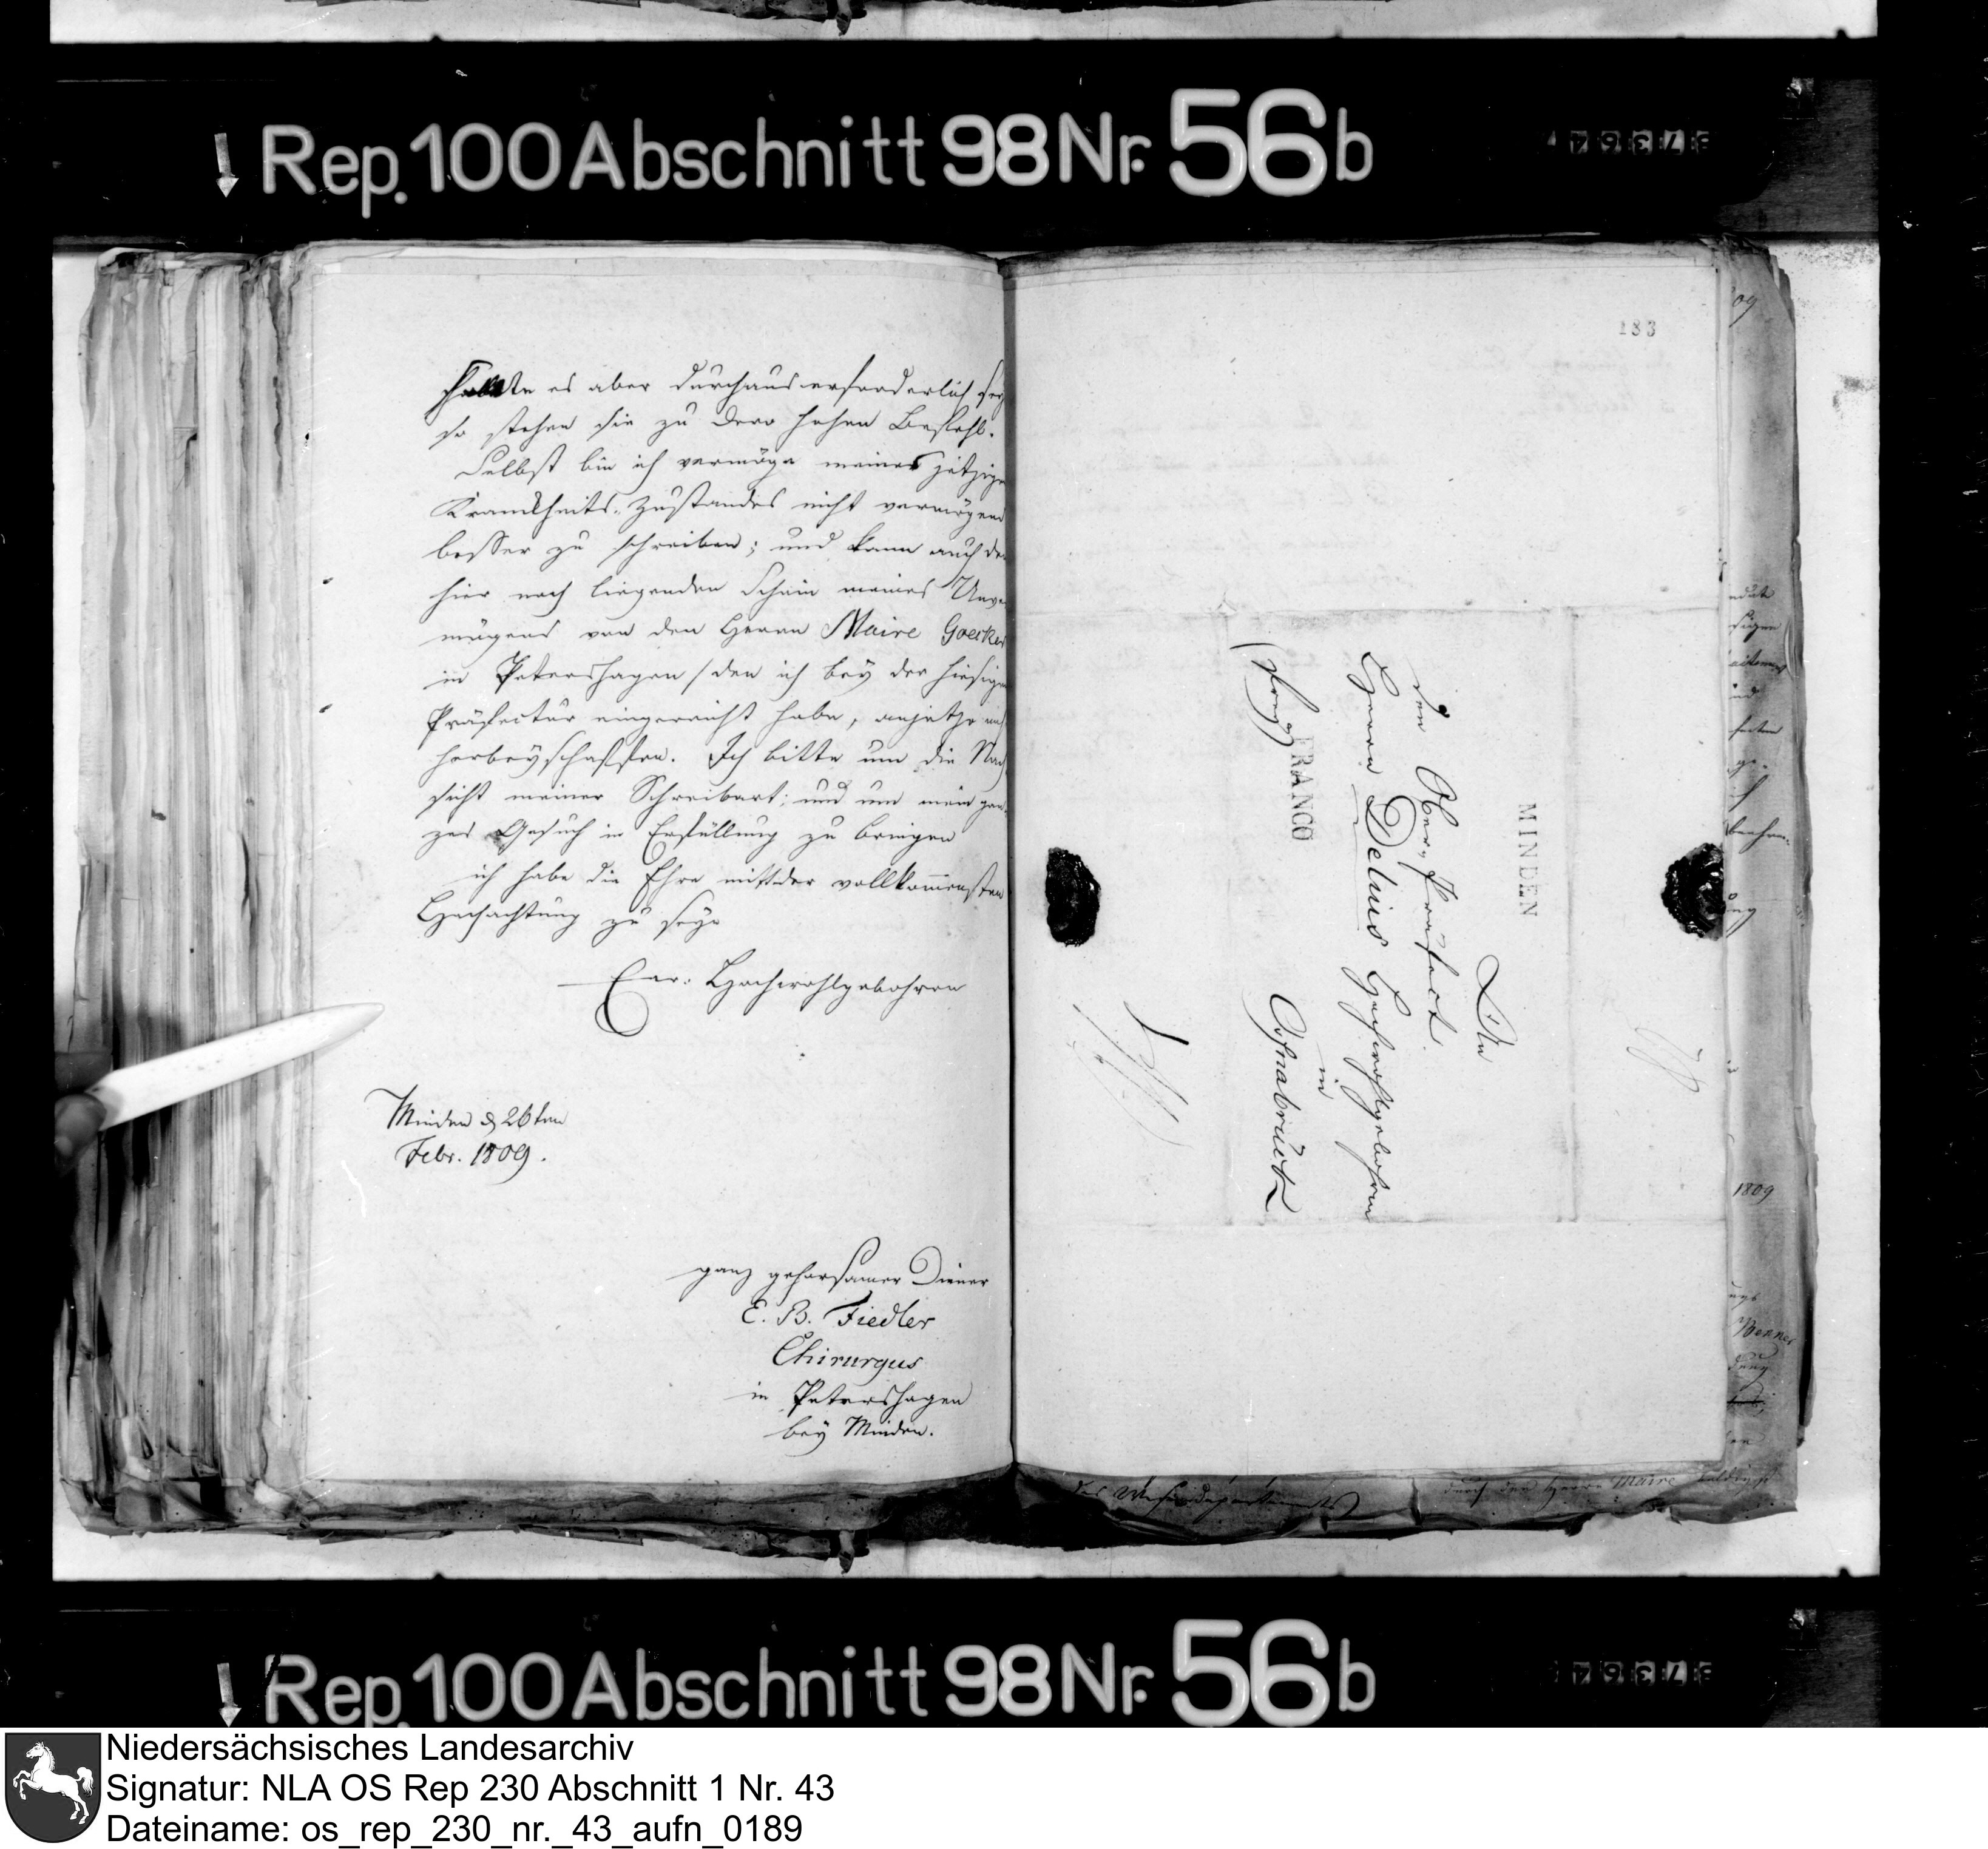 Rep. 100 Abschnitt 98 Nr. 56b
Sollte es aber durchaus erforderlich sey
so stehen sie zu dero hohen Befehl.
Selbst bin ich vermöge meines jetzige
Krankheits-Zustandes nicht vermögend
besser zu schreiben; und kann auch de
hier noch liegenden Schein meines Unve
mögens von den Herrn Maire Goecker
in Petershagen / den ich bey der hiesige
Präfectur eingereicht habe, anjetzo nich
herbeyschaffen. Ich bitte um die Nach
sicht meiner Schreibart; und um mein gan-
zes Gesuch in Erfüllung zu bringen
ich habe die Ehre mitt der vollkommensten
Hochachtung zu seyn
Ew: Hochwohlgebohren
Minden d 26ten
Febr. 1809.
ganz gehorsamer Diener
E. B. Fiedler
Chirurgus
in Petershagen
bey Minden.
183
MINDEN
den Ober-Präfect.
Herrn Delius Hochwohlgebohren
in
Osnabrück
franco
FRANCO
09
1809
des Weserdepartements
durch den Herrn Maire
Rep. 100 Abschnitt 98 Nr. 56b
Niedersächsisches Landesarchiv
Signatur: NLA OS Rep 230 Abschnitt 1 Nr. 43
Dateiname: os_rep_230_nr._43_aufn_0189